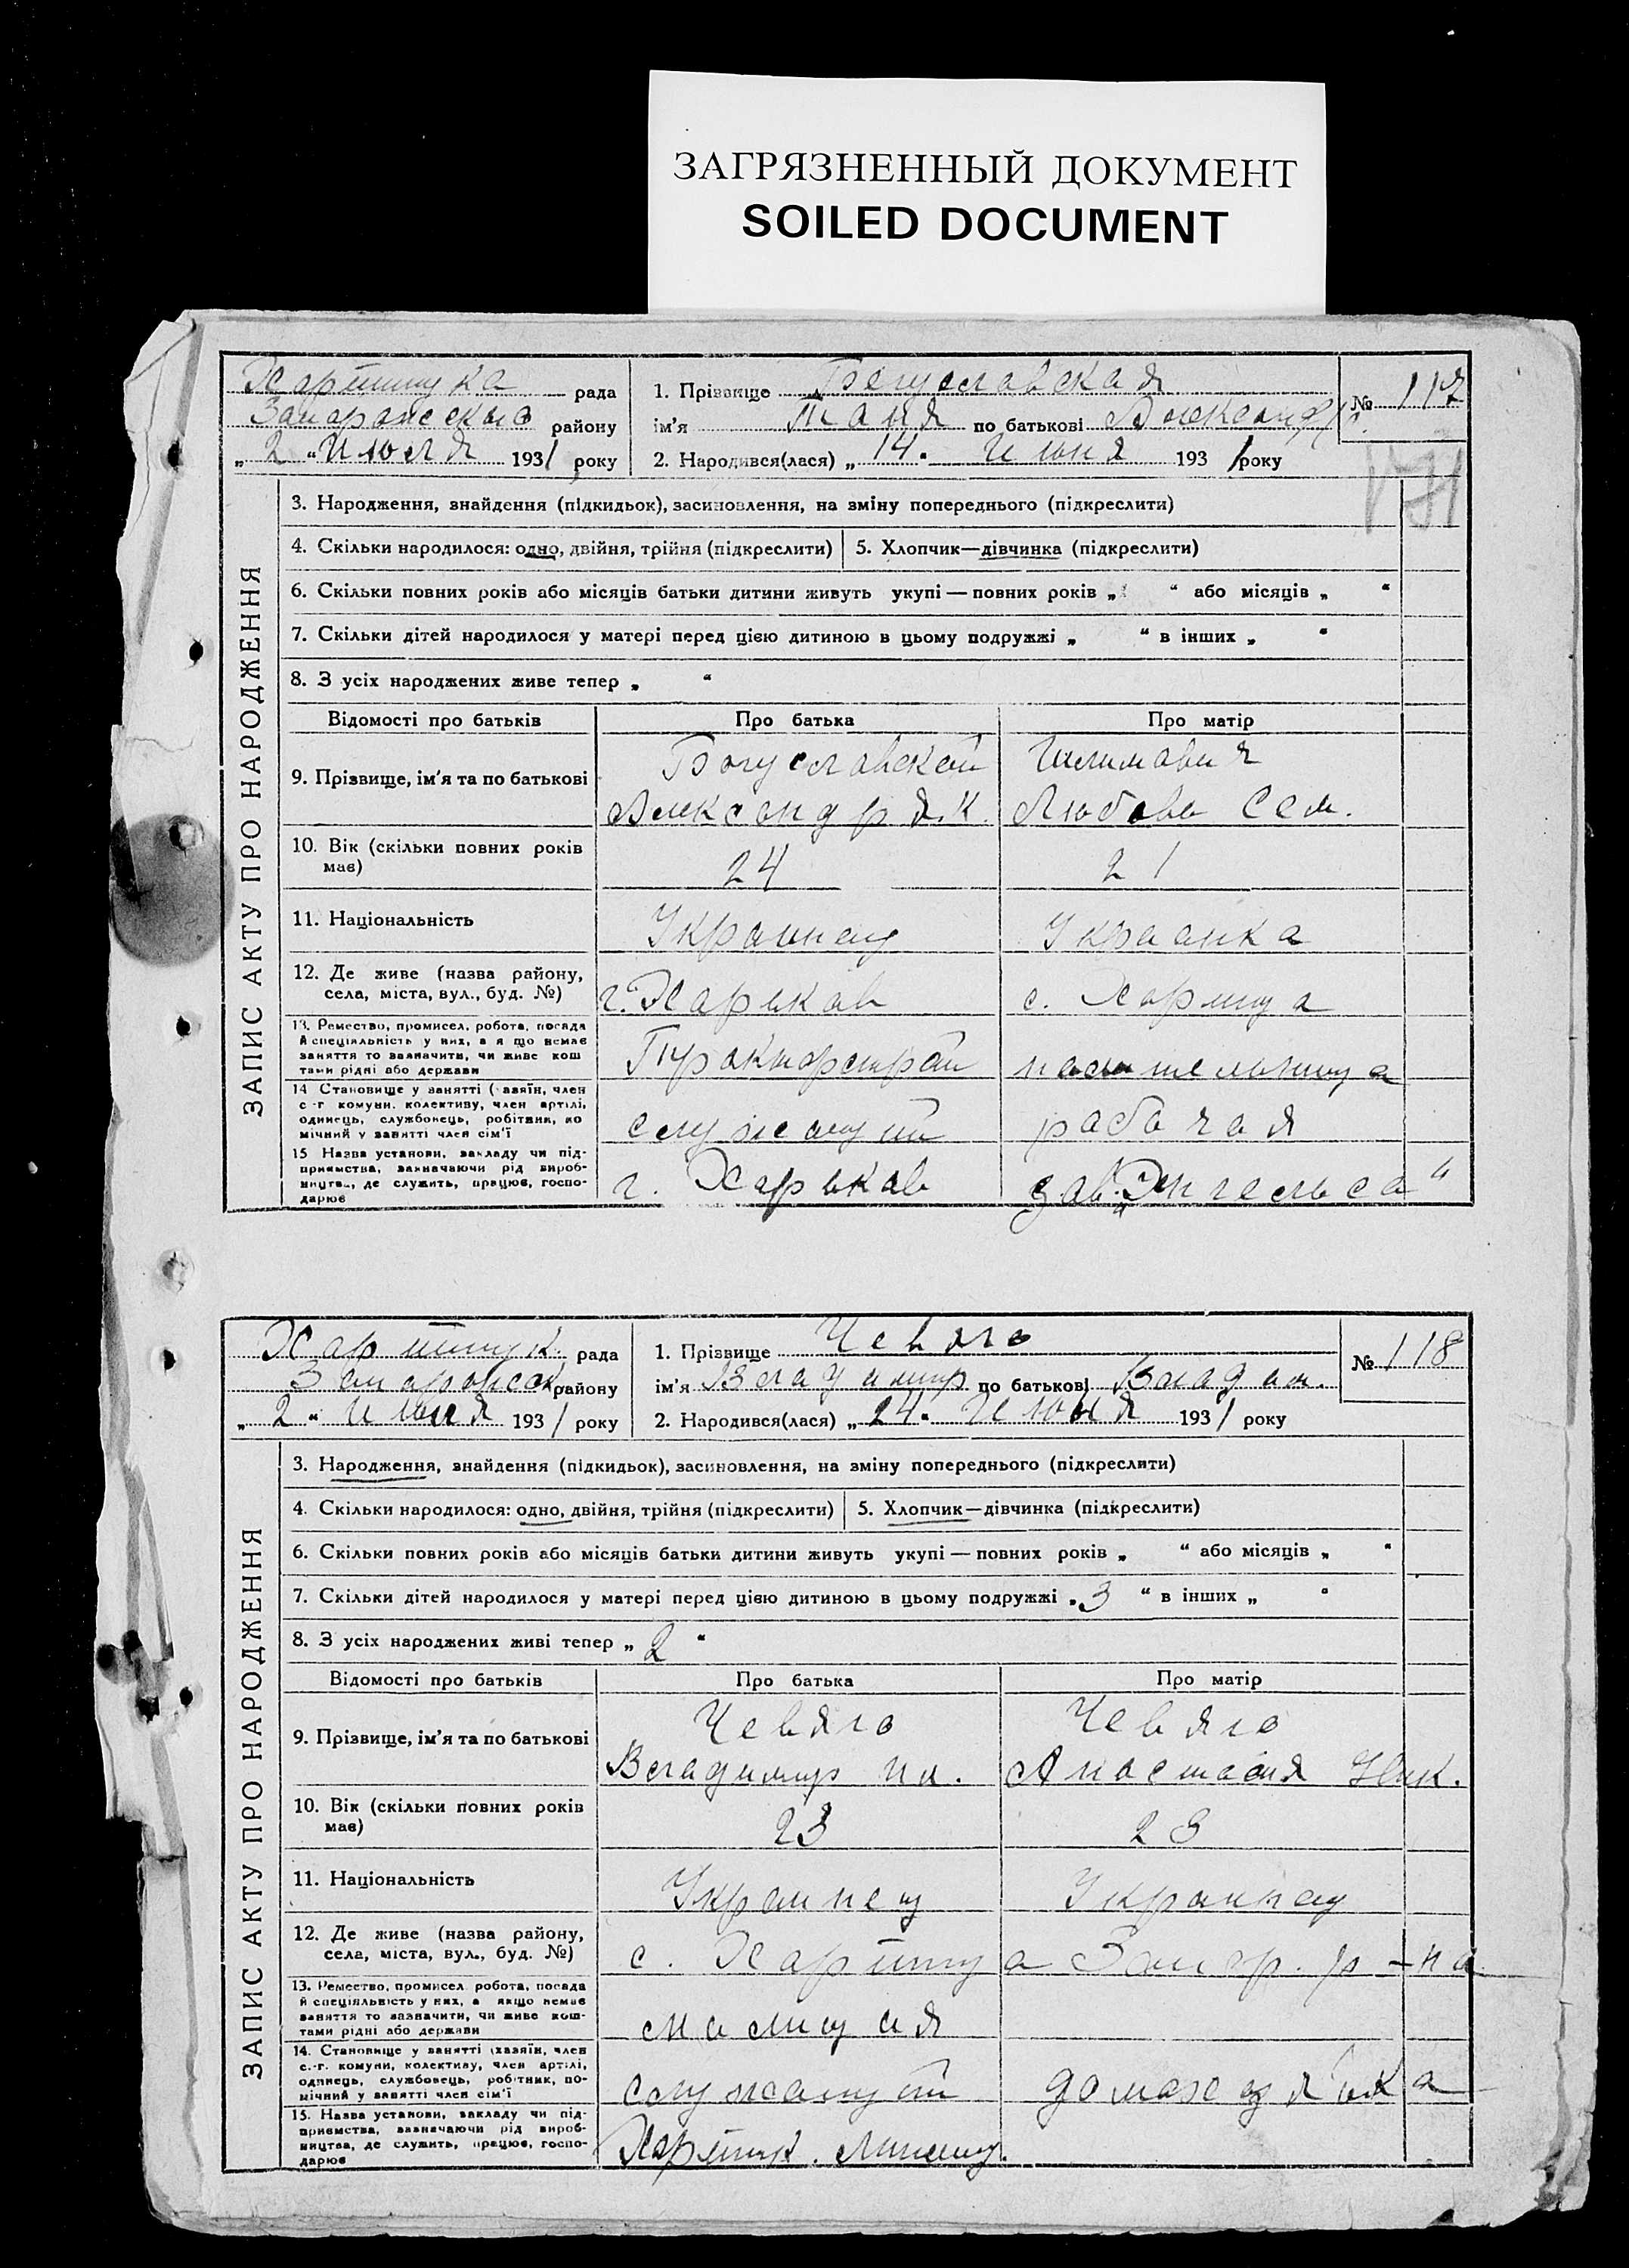 ЗАГРЯЗНЕННЫЙ ДОКУМЕНТ
SOILED DOCUMENT
рада
района
району
„ 2 “ Июля 1931 року
1. Прізвище Богуславская
ім'я Таня по батькові Александр.
2. Народився(лася) „ 14 “ Июня 1931 року
№ 117
ЗАПИС АКТУ ПРО НАРОДЖЕННЯ
3. Народження, знайдення (підкидьок), засиновлення, на зміну попереднього (підкреслити)
4. Скільки народилося: одно, двійня, трійня (підкреслити) 5. Хлопчик—дівчинка (підкреслити)
6. Скільки повних років або місяців батьки дитини живуть укупі — повних років „ “ або місяців „ “
7. Скільки дітей народилося у матері перед цією дитиною в цьому подружжі „ “ в інших „ “
8. З усіх народжених живе тепер „ “
Відомості про батьків Про батька Про матір
9. Прізвище, ім'я та по батькові
Богуславский
Александр
Любовь Сем.
10. Вік (скільки повних років має) 24 21
11. Національність Украинец Украинка
12. Де живе (назва району, села, міста, вул., буд. №) г. Харьков с.
13. Ремество, промисел, робота, посада
й спеціяльність у них, а я що немає
заняття то зазначити, чи живе кош
тами рідні або держави
Тракторстрой
14 Становище у занятті (хазяїн, член
с-г комуни, колективу, член артілі,
одинець, службовець, робітник, по
мічний у занятті член сім'ї
служащий рабочая
15 Назва установи, закладу чи під-
приємства, зазначаючи рід вироб-
ництва, де служить, працює, госпо-
дарює
г. Харьков зав. „Энгельса“
рада
району
„ 2 “ 1931 року
1. Прізвище Чевяго
ім'я Владимир по батькові Владим.
2. Народився(лася) „ 24 “ Июня 1931 року
№ 118
ЗАПИС АКТУ ПРО НАРОДЖЕННЯ
3. Народження, знайдення (підкидьок), засиновлення, на зміну попереднього (підкреслити)
4. Скільки народилося: одно, двійня, трійня (підкреслити) 5. Хлопчик—дівчинка (підкреслити)
6. Скільки повних років або місяців батьки дитини живуть укупі — повних років „ “ або місяців „ “
7. Скільки дітей народилося у матері перед цією дитиною в цьому подружжі „ 3 “ в інших „ “
8. З усіх народжених живі тепер „ 2 “
Відомості про батьків Про батька Про матір
9. Прізвище, ім'я та по батькові
Чевяго Чевяго
Владимир Анастасия Ник.
10. Вік (скільки повних років має) 23 23
11. Національність Украинец Украинец
12. Де живе (назва району, села, міста, вул., буд. №) с. р-на
13. Ремество, промисел, робота, посада
й спеціяльність у них, а якщо немає
заняття то зазначити, чи живе кош-
тами рідні або держави
14. Становище у занятті (хазяїн, член
с.-г. комуни, колективу, член артілі,
одинець, службовець, робітник, по-
мічний у занятті член сім'ї
служащий домахозяйка
15. Назва установи, закладу чи під-
приємства, зазначаючи рід вироб-
ництва, де служить, працює, госпо-
дарює